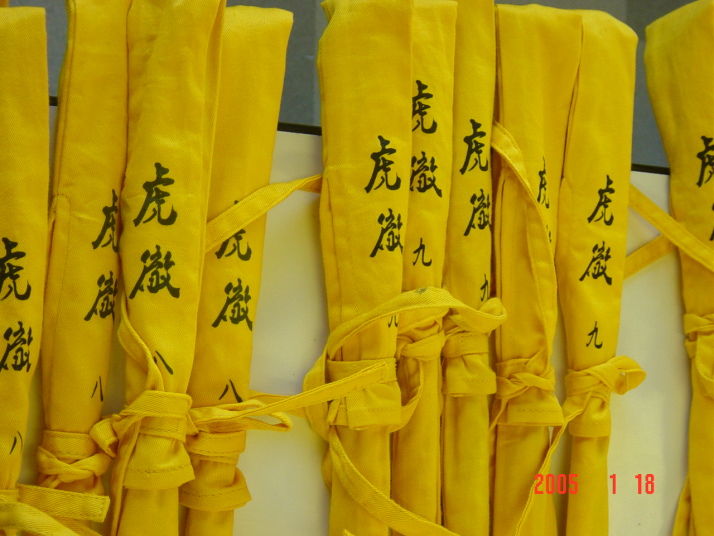 虎徹
虎徹八
虎徹八
虎徹八
虎徹
虎徹九
虎徹九
虎
虎徹九
虎
2005 1 18